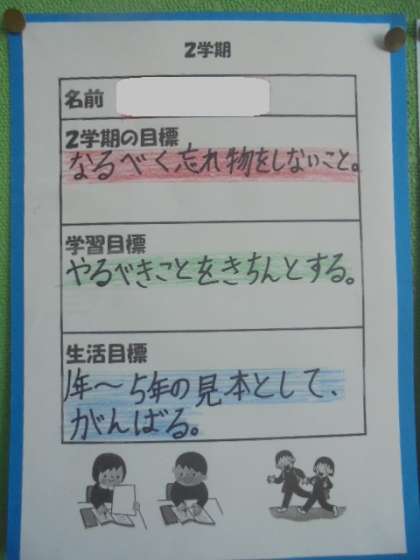 2学期
名前
2学期の目標
なるべく忘れ物をしないこと。
学習目標
やるべきことをきちんとする。
生活目標
1年〜5年の見本として、
がんばる。